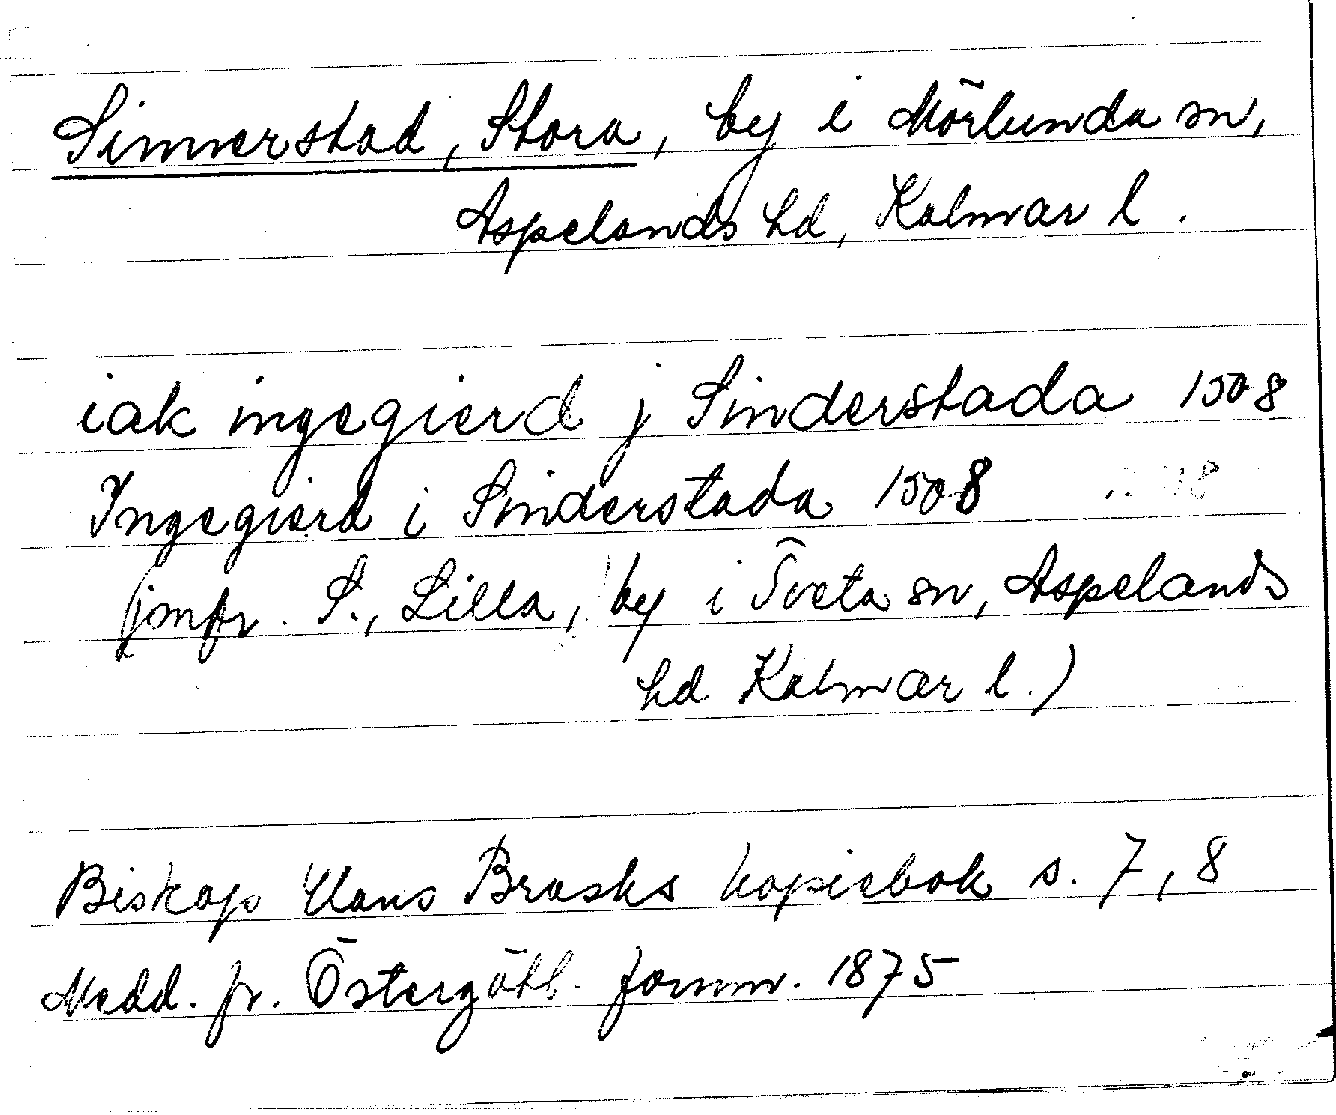 Sinnerstad, Stora, by i Mörlunda sn,
Aspelands hd, Kalmar l.
iak ingegierd j Sinderstada 1508
Ingegierd i Sinderstada 1508
(jmfr. S., Lilla, by i Tveta sn, Aspelands
hd Kalmar l.)
Biskop Hans Brasks kopiebok s. 7, 8
Medd. fr. Östergötl. fornm. 1875